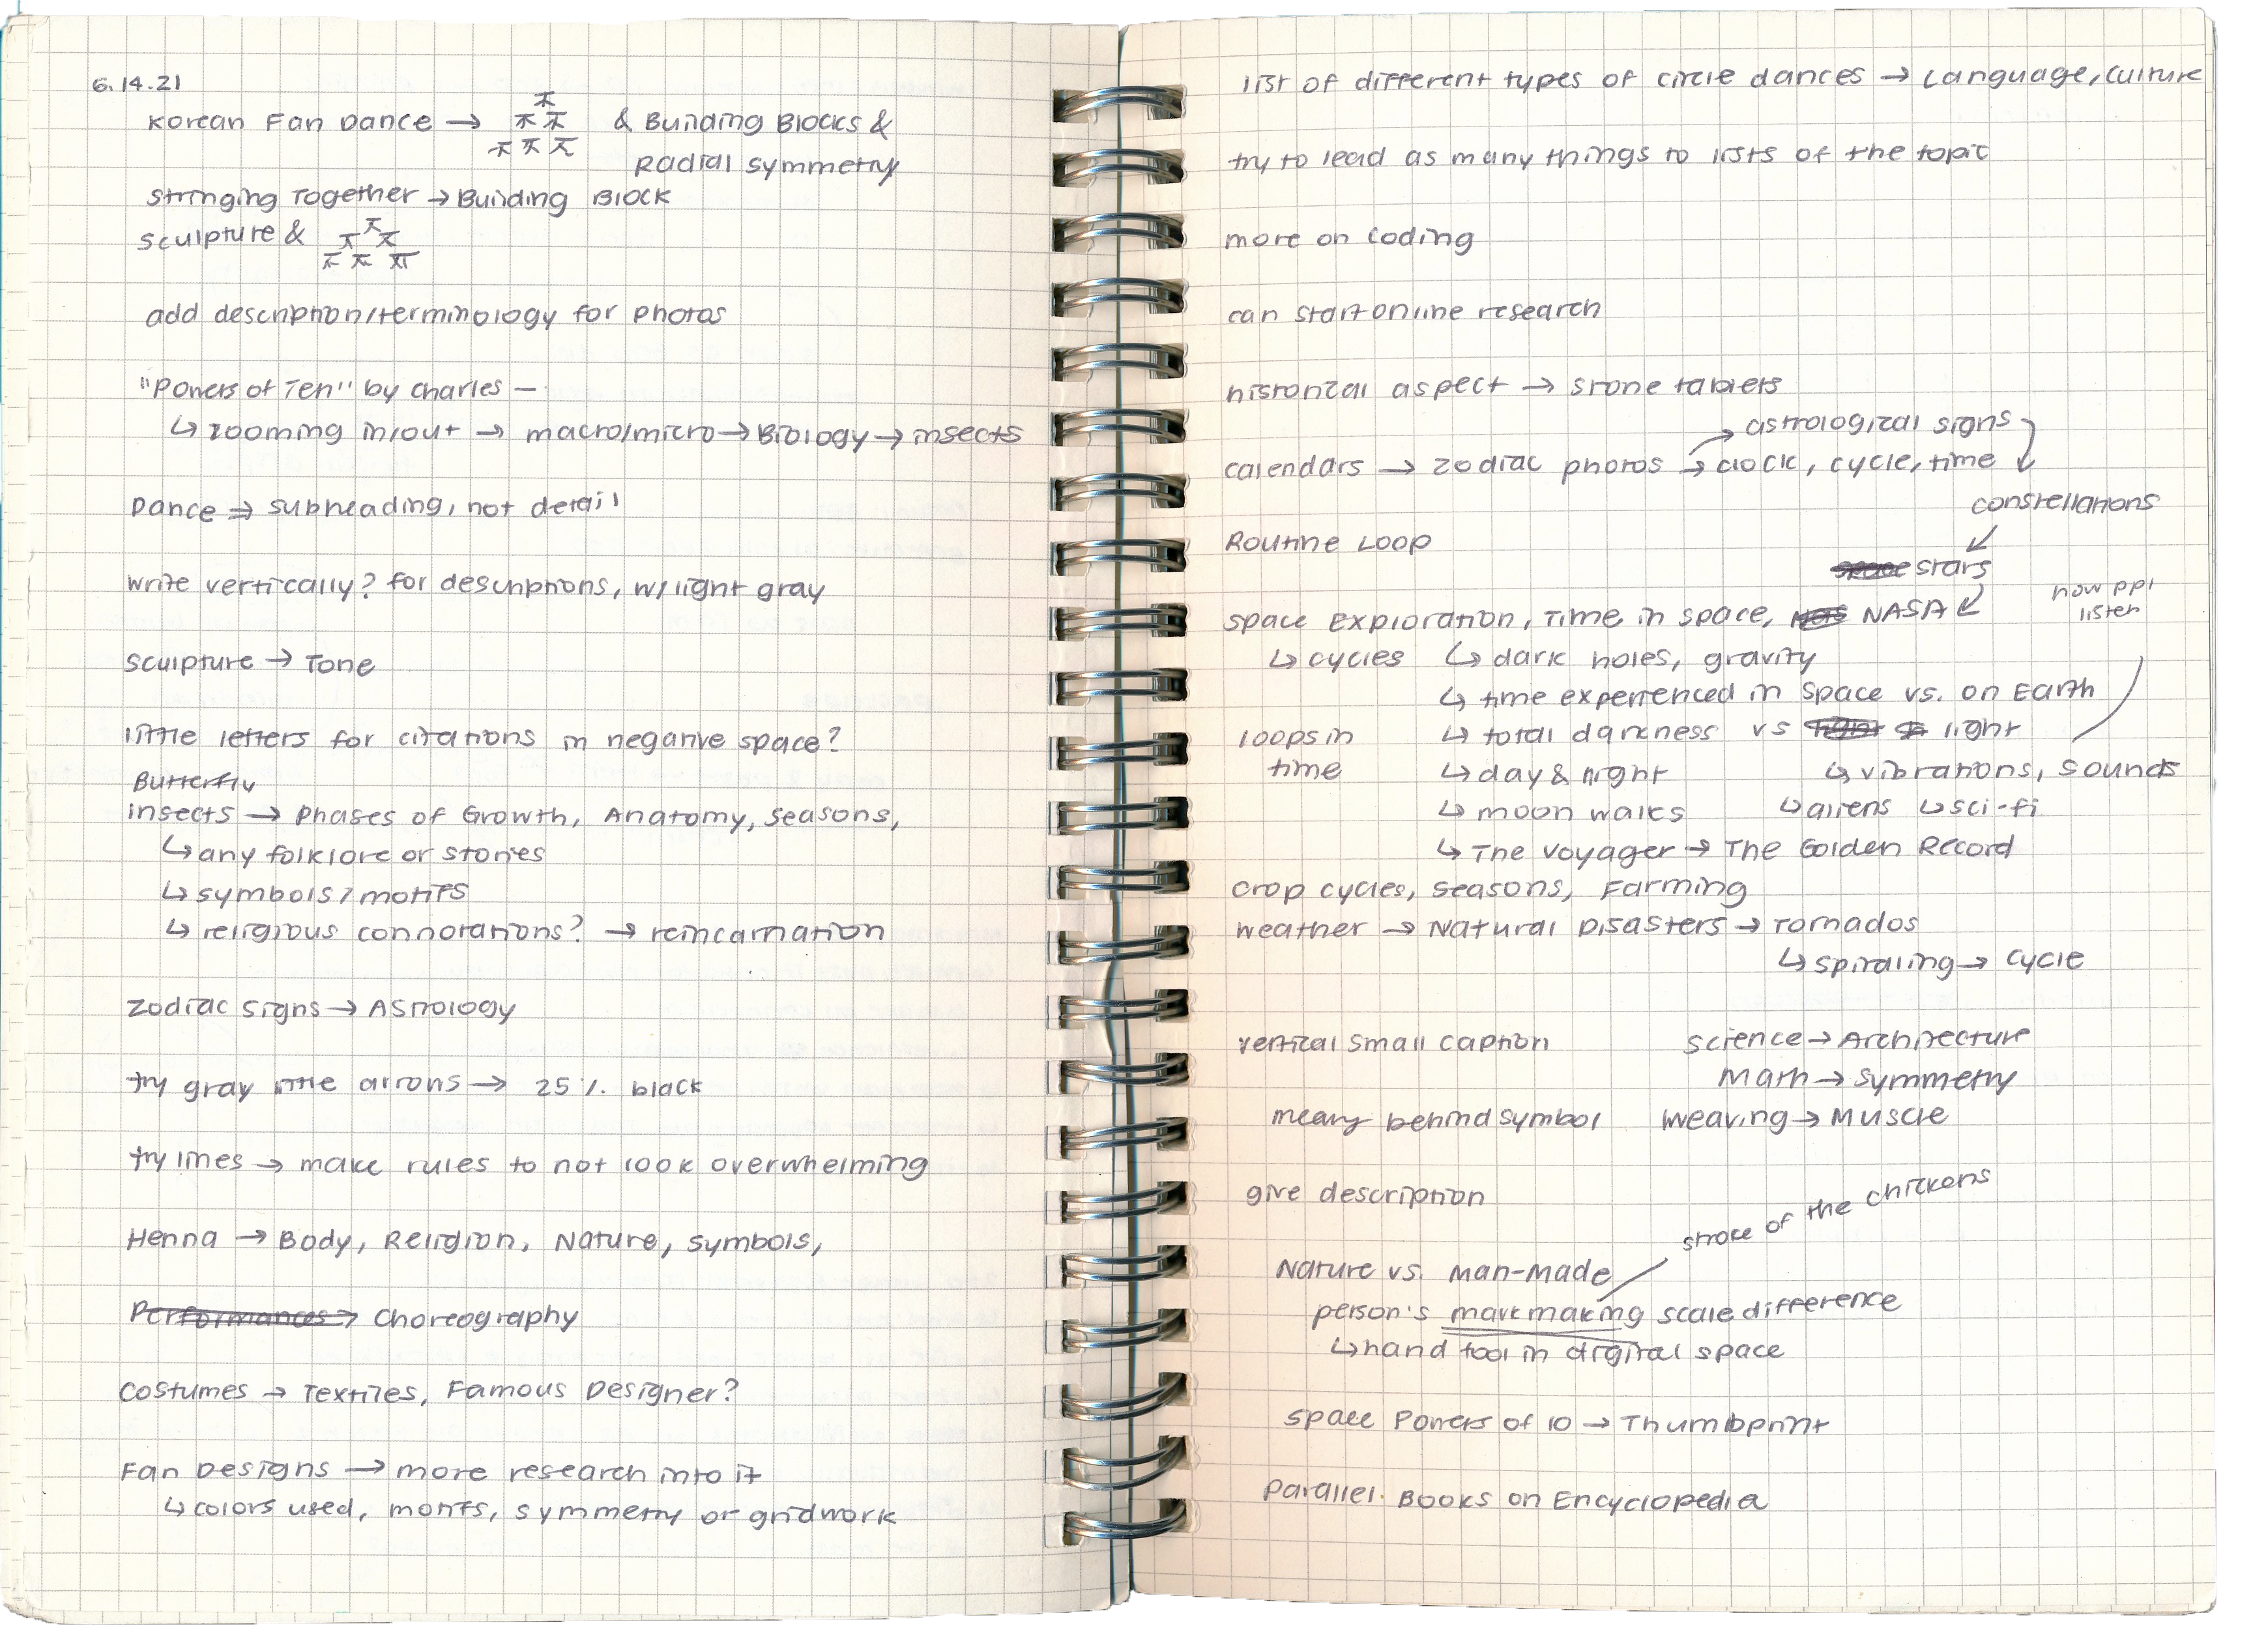 6.14.21
Korean Fan Dance → 不 & Building Blocks &
不 不
不 不 不
Radial Symmetry
Stringing Together → Building Block
Sculpture & 不
不 不
不 不 不
add description/terminology for photos
"Powers of Ten" by Charles —
↳ zooming in/out → macro/micro → Biology → insects
Dance → subheading, not detail
write vertically? for descriptions, w/ light gray
Sculpture → Tone
little letters for citations in negative space?
Butterfly
insects → Phases of Growth, Anatomy, Seasons,
↳ any folklore or stories
↳ symbols/motifs
↳ religious connotations? → reincarnation
Zodiac Signs → Astrology
try gray little arrows → 25% black
try lines → make rules to not look overwhelming
Henna → Body, Religion, Nature, Symbols,
Performances → Choreography
Costumes → Textiles, Famous Designer?
Fan Designs → more research into it
↳ colors used, motifs, symmetry or gridwork
list of different types of circle dances → Language, Culture
try to lead as many things to lists of the topic
more on coding
can start online research
historical aspect → stone tablets
astrological signs
calendars → zodiac photos → clock, cycle, time
constellations
Routine Loop
space stars
how ppl
listen
Space Exploration, Time in space, NASA
↳ cycles ↳ dark holes, gravity
↳ time experienced in space vs. on Earth
loops in
time
↳ total darkness vs light
↳ day & night ↳ vibrations, sounds
↳ moon walks ↳ aliens ↳ sci-fi
↳ The Voyager → The Golden Record
crop cycles, seasons, Farming
weather → Natural Disasters → Tornados
↳ spiraling → cycle
vertical small caption
Science → Architecture
Math → Symmetry
meany behind symbol
Weaving → Muscle
give description
stroke of the chickens
Nature vs. Man-made
person's markmaking scale difference
↳ hand tool in digital space
Space Powers of 10 → Thumbprint
Parallel. Books on Encyclopedia